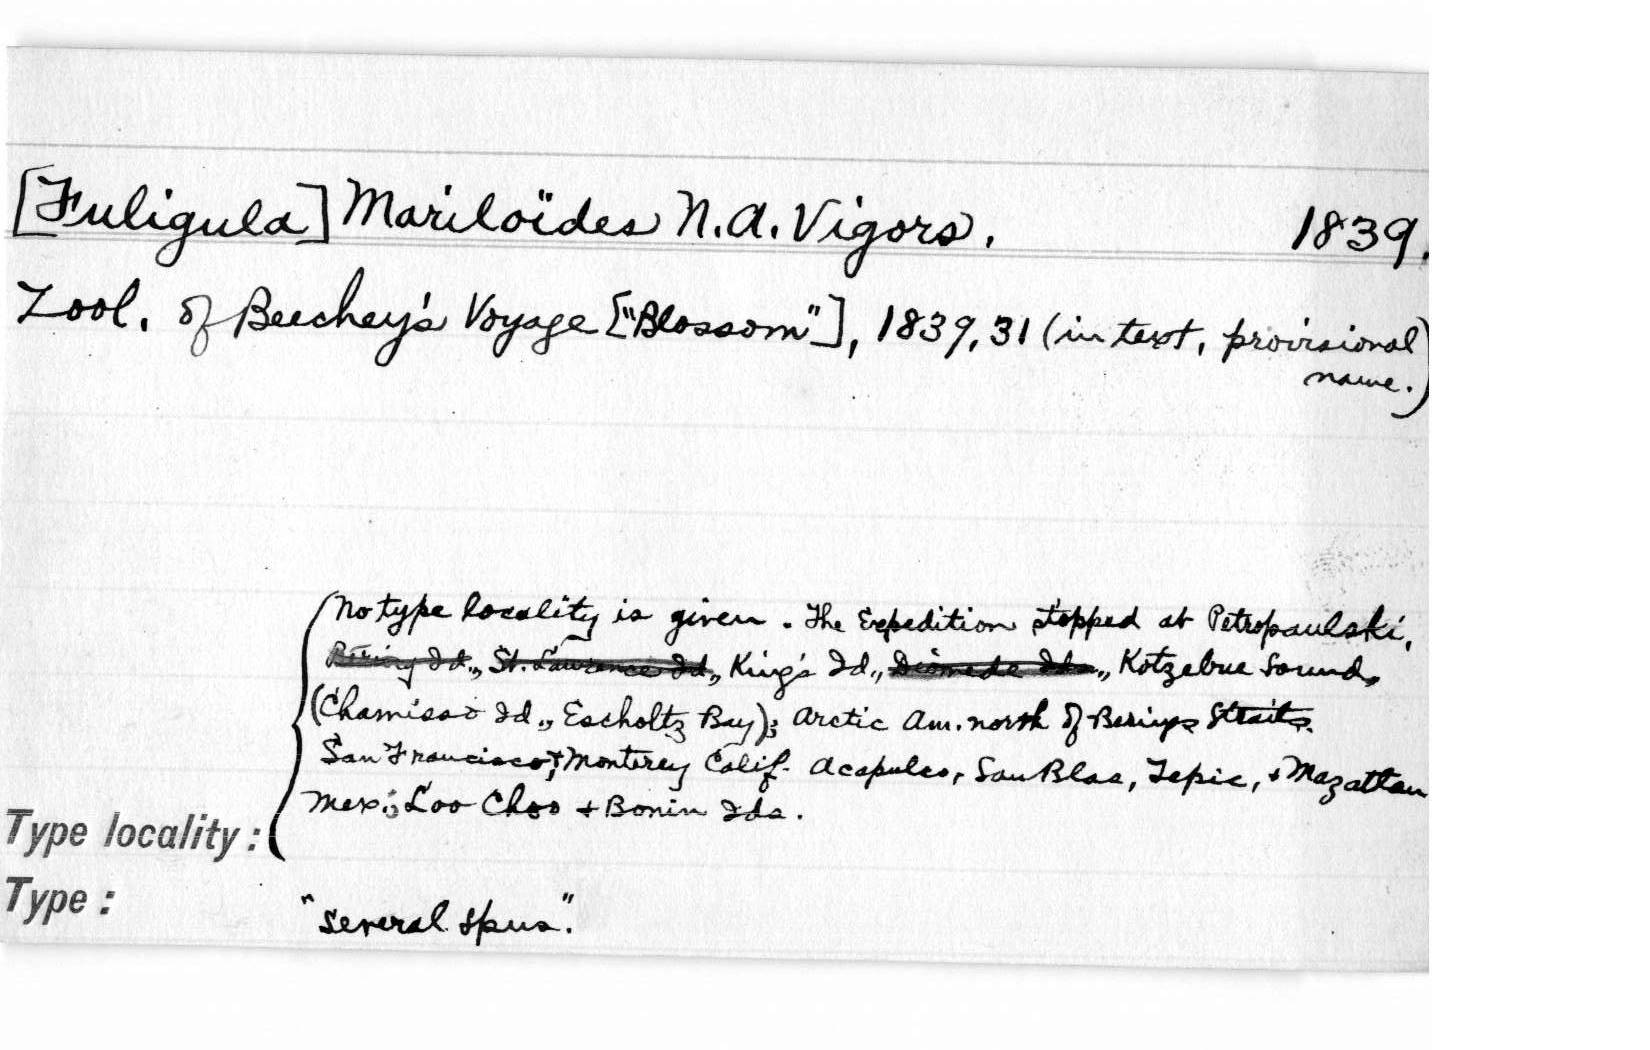 [Fuligula] Mariloïdes N.A. Vigors. 1839.
Zool. of Beechey's Voyage ["Blossom"], 1839, 31 (in text, provisional
name.)
No type locality is given. The Expedition stopped at Petropaulski,
Bering Id., St. Lawrence Id., King's Id., Diomede Ids., Kotzebue Sound,
(Chamisso Id., Escholtz Bay); Arctic Am. north of Berings Straits.
San Francisco, + Monterey Calif. Acapulco, San Blas, Tepic, + Mazatlan
Mex.; Loo Choo + Bonin Ids.
Type locality:
Type: "Several spns".